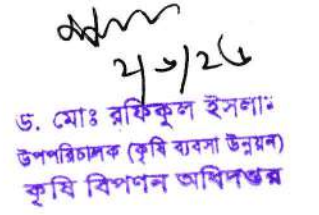 ২/৩/২৬
ড. মোঃ রফিকুল ইসলাম
উপপরিচালক (কৃষি ব্যবসা উন্নয়ন)
কৃষি বিপণন অধিদপ্তর